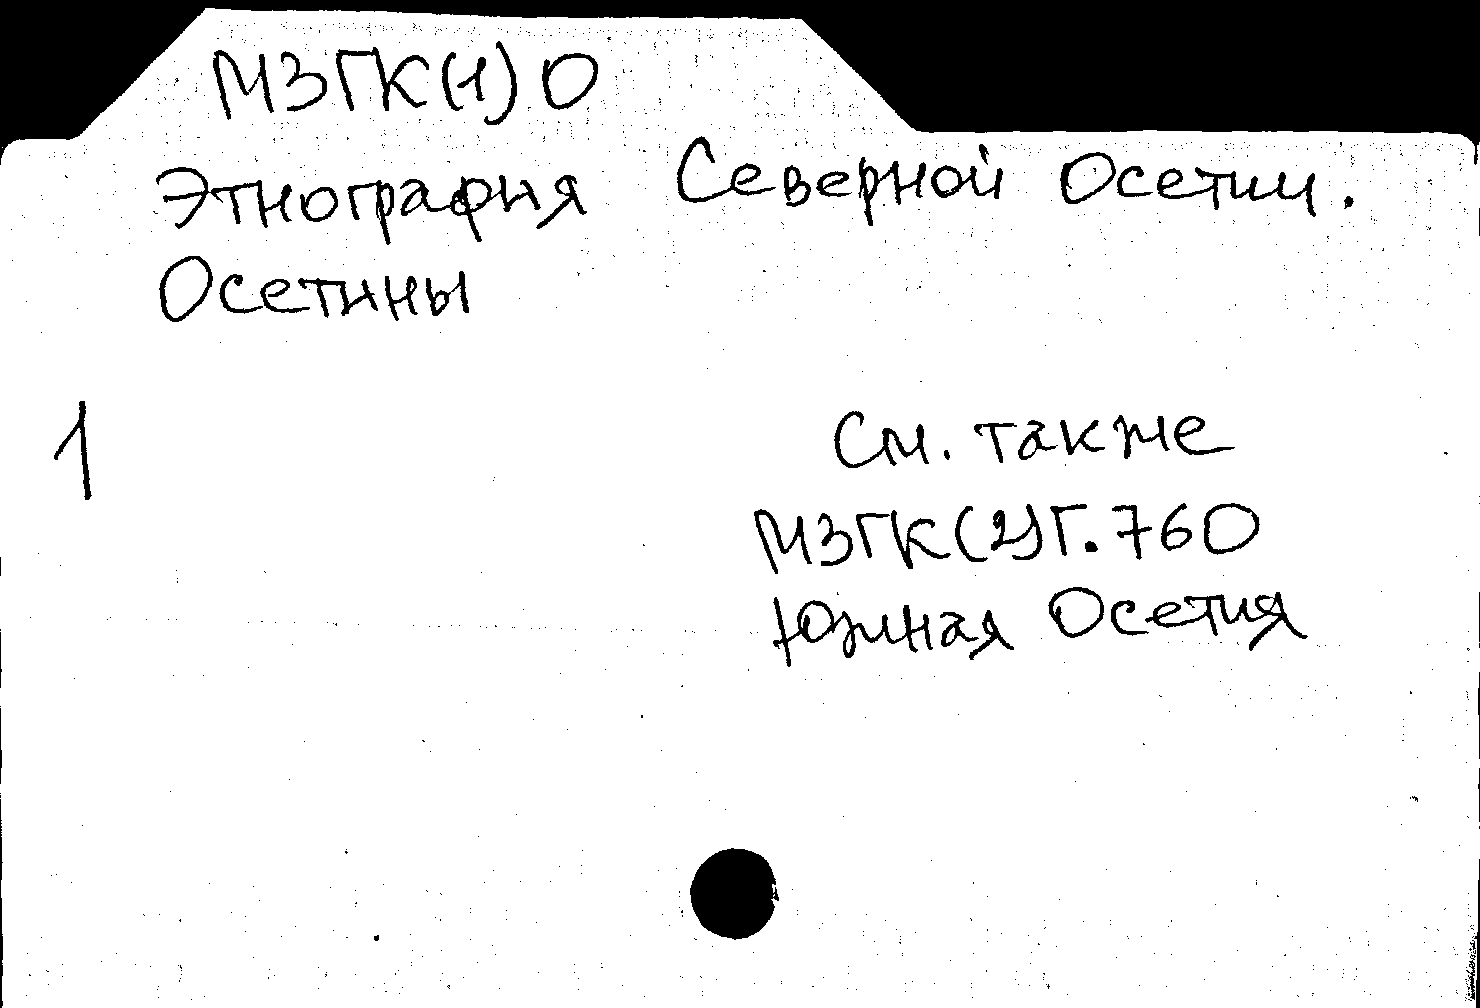 МЗГК(1)О
Этнография Северной Осетии.
Осетины
1
См. также
МЗГК(2)Г.760
Южная Осетия